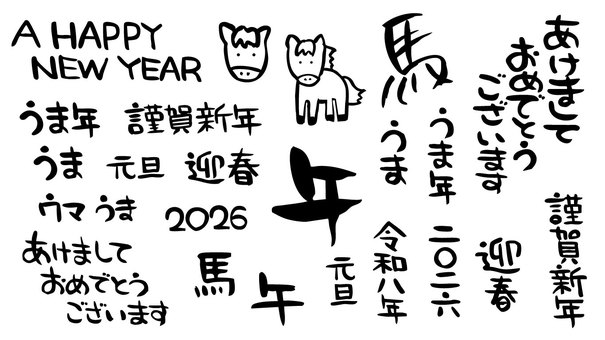 A HAPPY
NEW YEAR
うま年
謹賀新年
うま
元旦
迎春
ウマ
うま
2026
あけまして
おめでとう
ございます
馬
午
午
馬
うま
うま年
あけまして
おめでとう
ございます
元旦
令和八年
二〇二六
迎春
謹賀新年